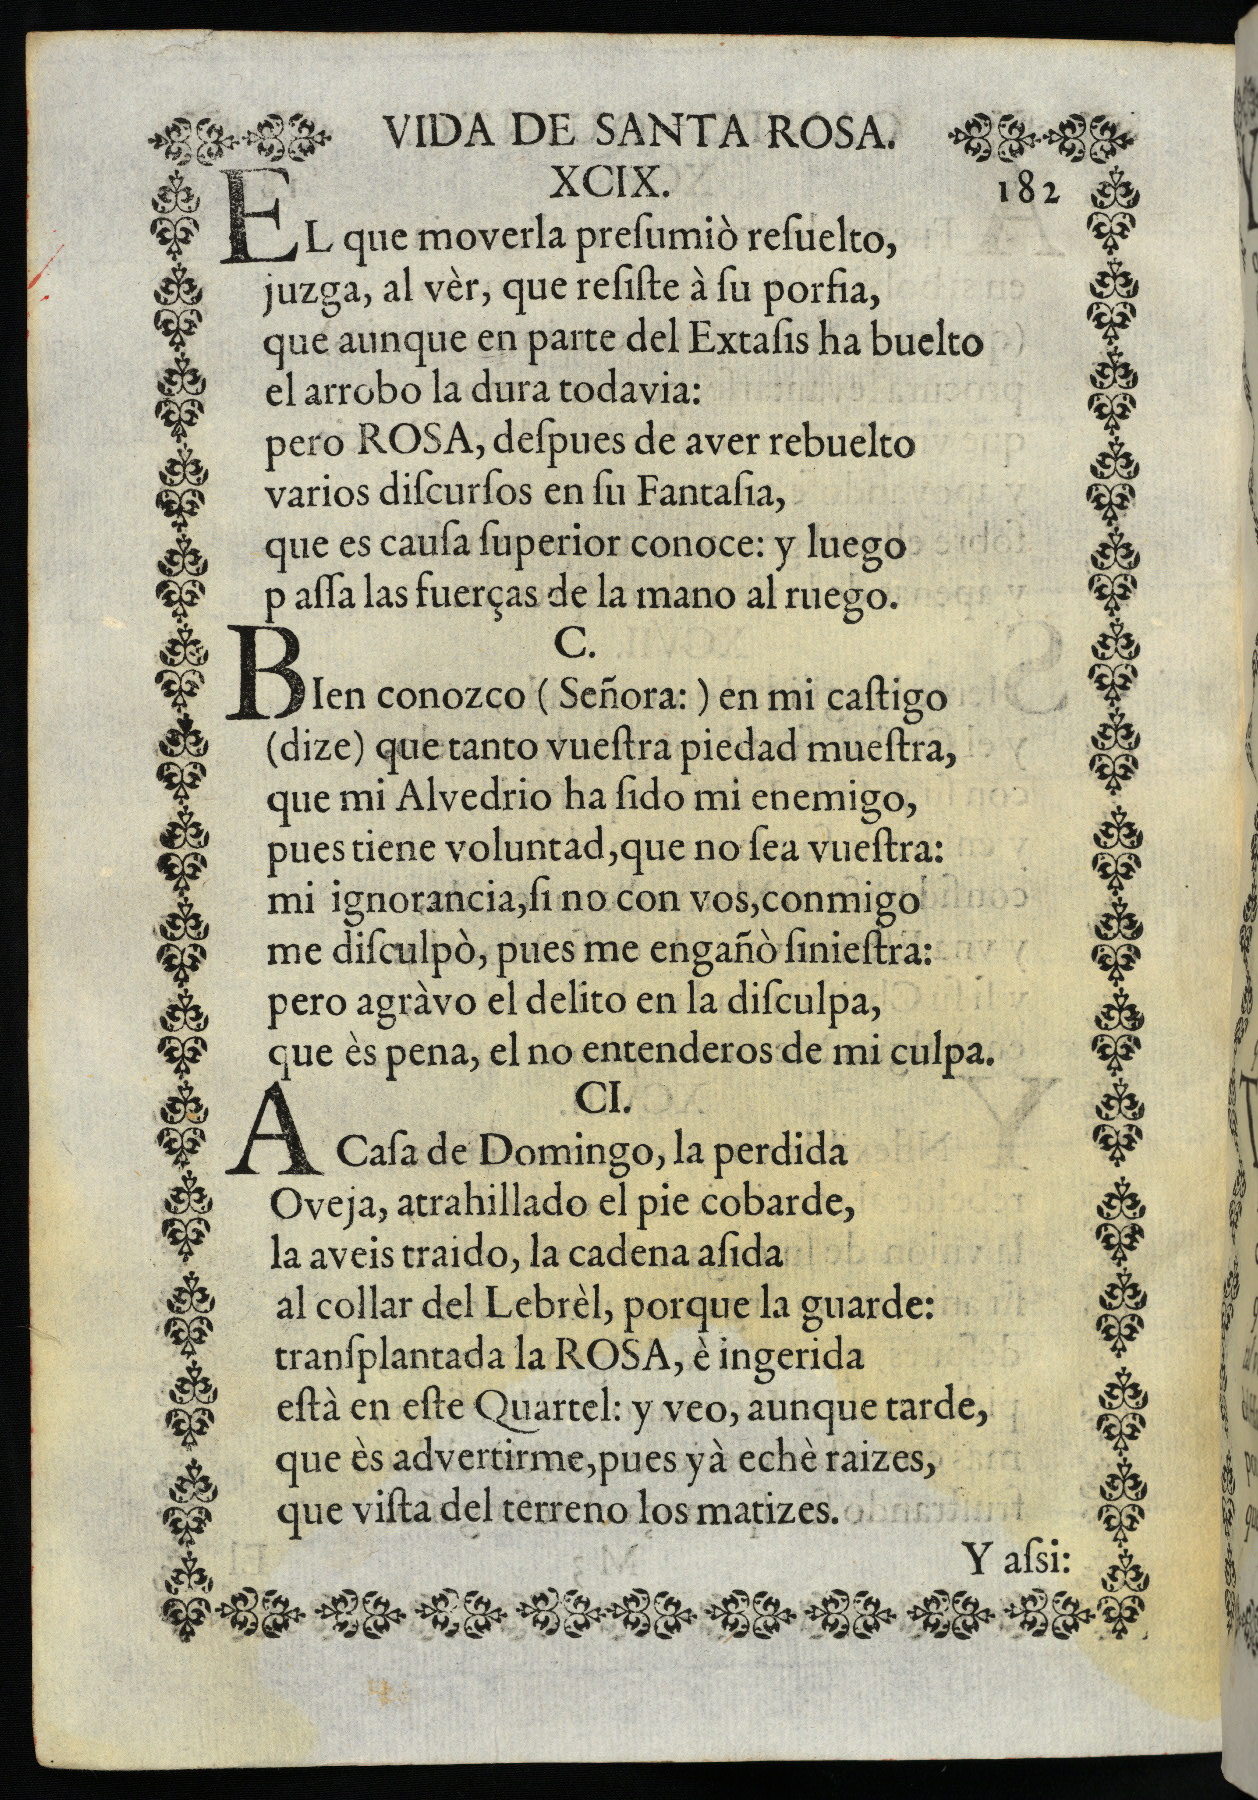 VIDA DE SANTA ROSA.
XCIX. 182
EL que moverla preſumiò reſuelto,
juzga, al vèr, que reſiſte à ſu porfia,
que aunque en parte del Extaſis ha buelto
el arrobo la dura todavia:
pero ROSA, deſpues de aver rebuelto
varios diſcurſos en ſu Fantaſia,
que es cauſa ſuperior conoce: y luego
p aſſa las fuerças de la mano al ruego.
C.
BIen conozco ( Señora: ) en mi caſtigo
(dize) que tanto vueſtra piedad mueſtra,
que mi Alvedrio ha ſido mi enemigo,
pues tiene voluntad,que no ſea vueſtra:
mi ignorancia,ſi no con vos,conmigo
me diſculpò, pues me engañò ſinieſtra:
pero agràvo el delito en la diſculpa,
que ès pena, el no entenderos de mi culpa.
CI.
A Caſa de Domingo, la perdida
Oveja, atrahillado el pie cobarde,
la aveis traido, la cadena aſida
al collar del Lebrèl, porque la guarde:
tranſplantada la ROSA, è ingerida
eſtà en eſte Quartel: y veo, aunque tarde,
que ès advertirme,pues yà echè raizes,
que viſta del terreno los matizes.
Y aſsi: